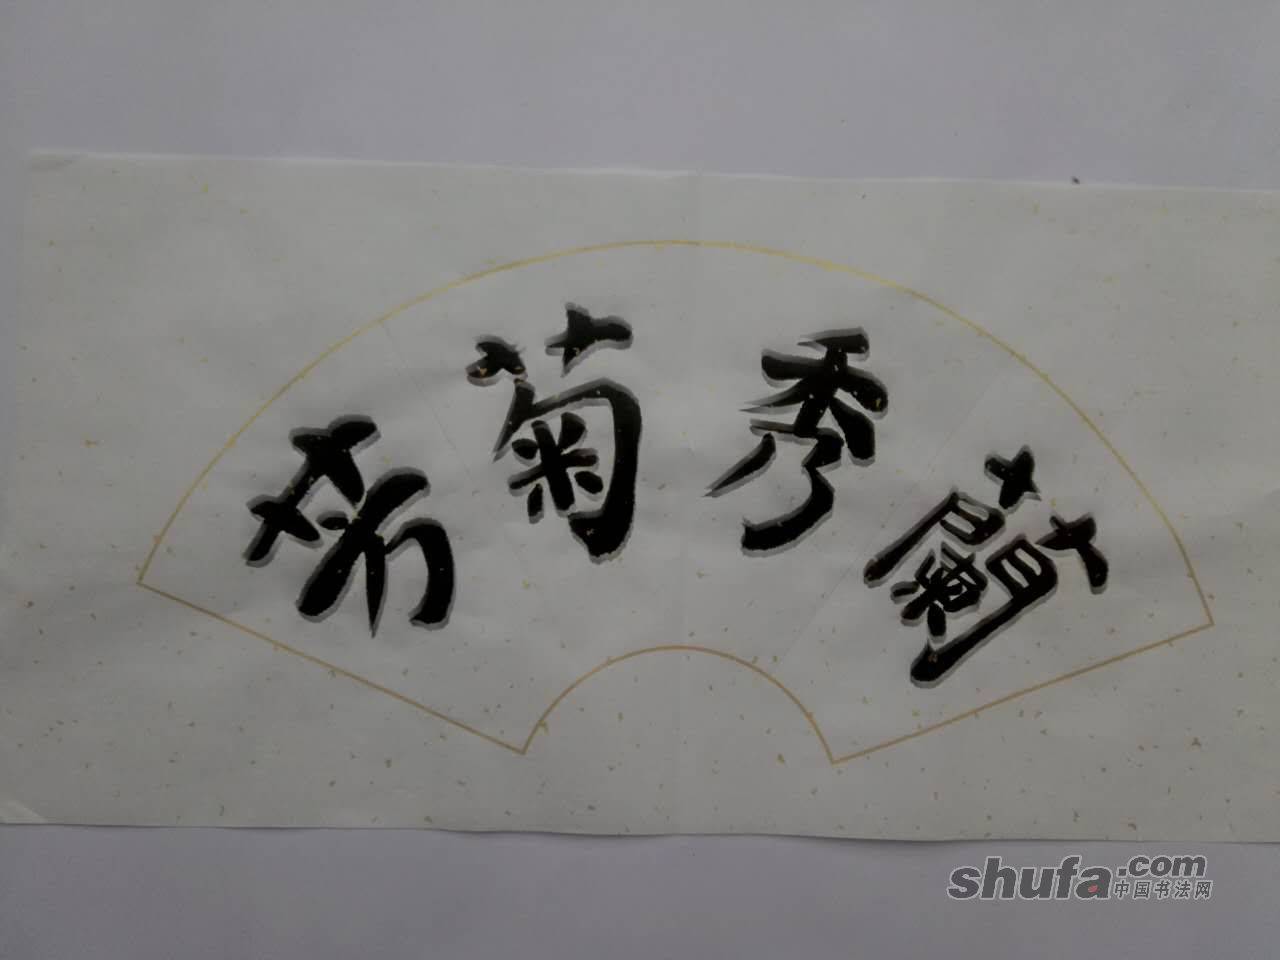 蘭秀菊芳
shufa.com
中国书法网